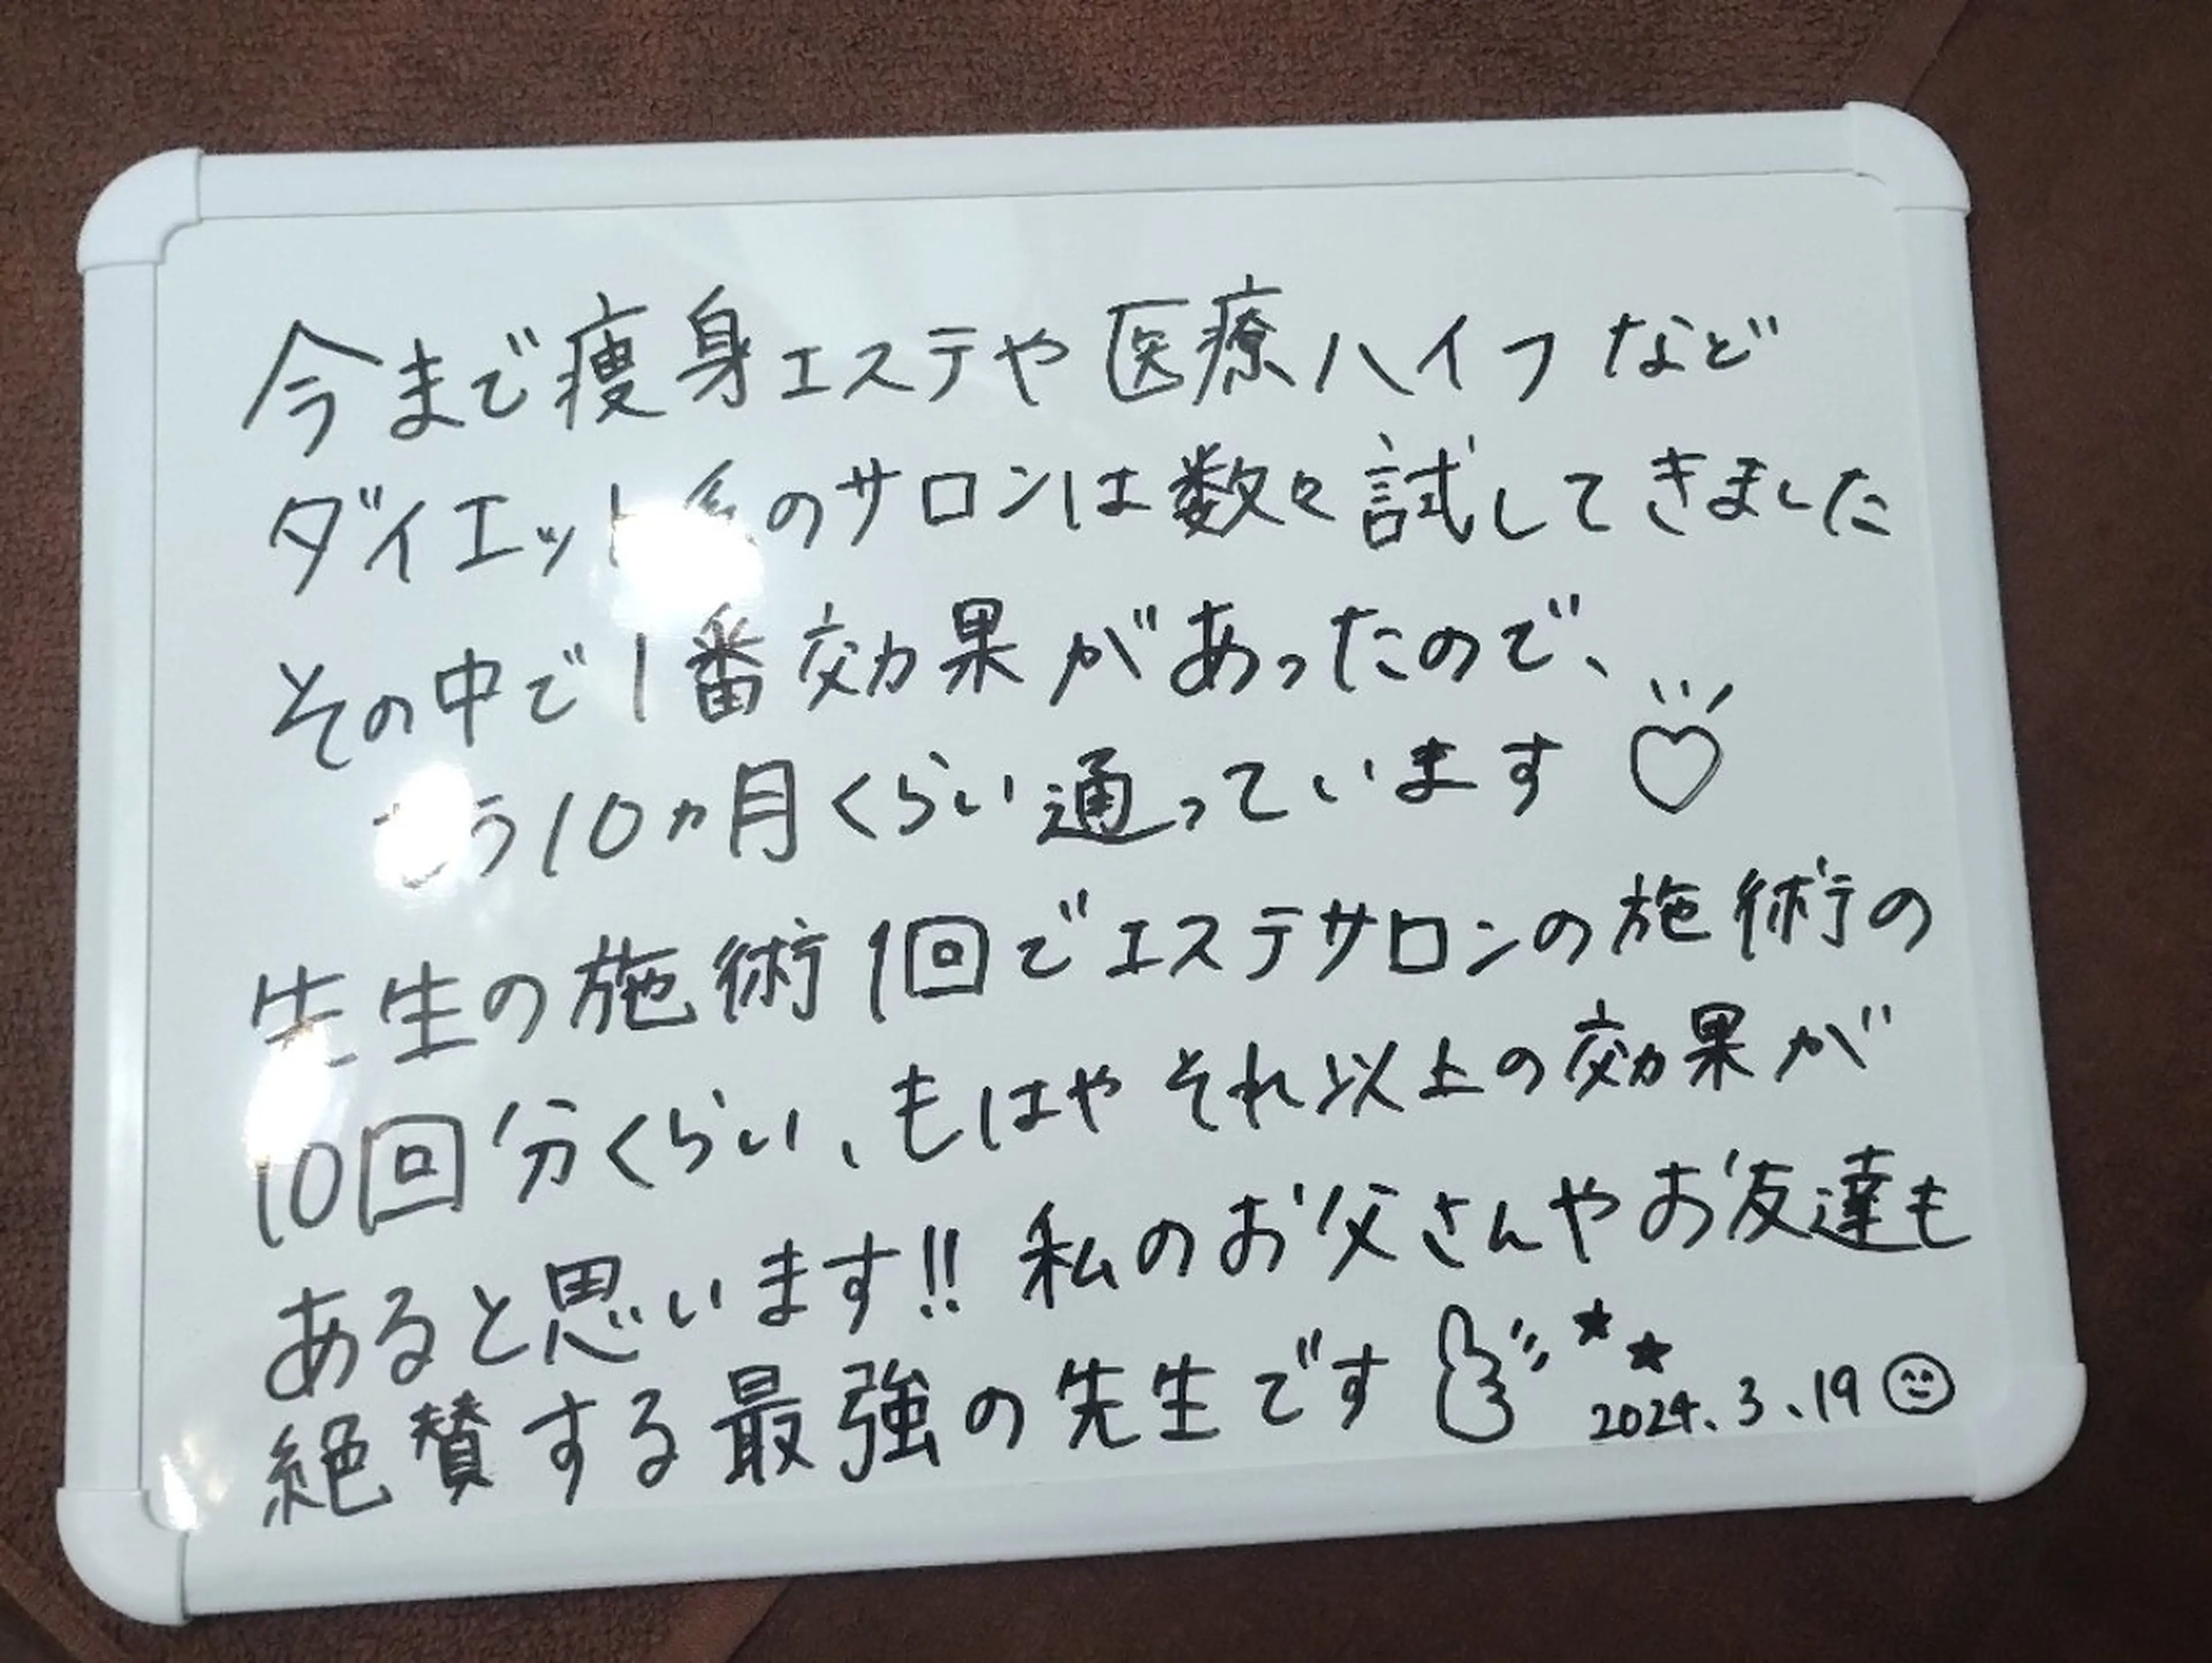 今まで痩身エステや医療ハイフなど
ダイエット系のサロンは数々試してきました
その中で1番効果があったので、
もう10ヵ月くらい通っています♡
先生の施術1回でエステサロンの施術の
10回分くらい、もはやそれ以上の効果が
あると思います!! 私のお父さんやお友達も
絶賛する最強の先生です
2024.3.19